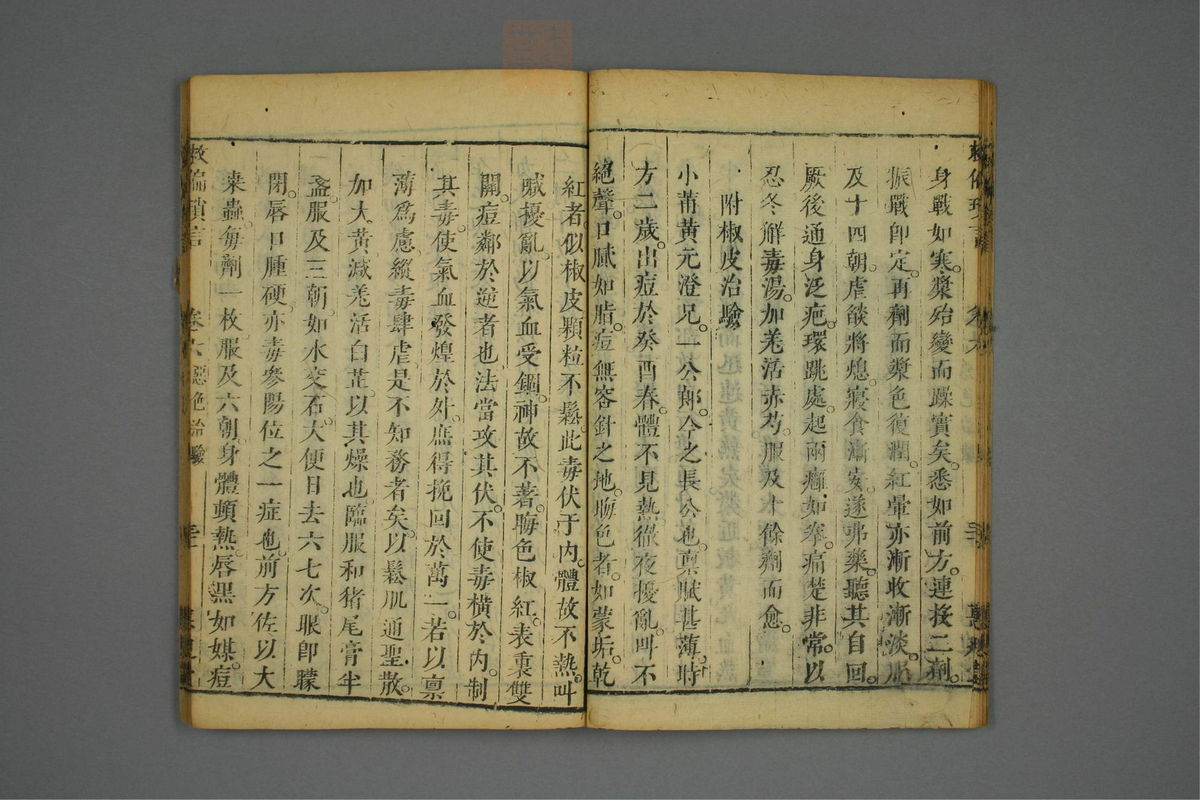 身戰如寒。漿殆變而躁實矣。悉如前方。連投二劑。
振戰卽定。再劑而漿色復潤。紅暈亦漸收漸淡。
及十四朝。虐燄將熄。寢食漸安。遂弗藥。聽其自回。
厥後通身泛疤。環跳處。起兩癰如拳。痛楚非常。以
忍冬解毒湯。加羗活赤芍。服及十餘劑而愈。
附椒皮治驗
小莆黃元澄兄。一公郞。今之長公也。禀賦甚薄。時
方二歲。出痘於癸酉春。體不見熱。徹夜擾亂。叫不
絕聲。口膩如脂。痘無容針之地。晦色者。如蒙垢。乾
紅者。似椒皮。顆粒不鬆。此毒伏于内。體故不熱。叫
號擾亂。以氣血受錮。神故不著。晦色椒紅。表裏雙
關。痘鄰於逆者也。法當攻其伏。不使毒橫於内。制
其毒。使氣血發煌於外。庶得挽回於萬一。若以禀
薄爲慮。縱毒肆虐。是不知務者矣。以鬆肌通聖散。
加大黃。減羗活白芷。以其燥也。臨服和猪尾膏半
盞。服及三朝。如水交石。大便日去六七次。眼卽朦
閉。唇口腫硬。亦毒參陽位之一症也。前方佐以大
桒蟲。每劑一枚。服及六朝。身體頓熱。唇黑如媒。痘
救偏瑣言
卷六